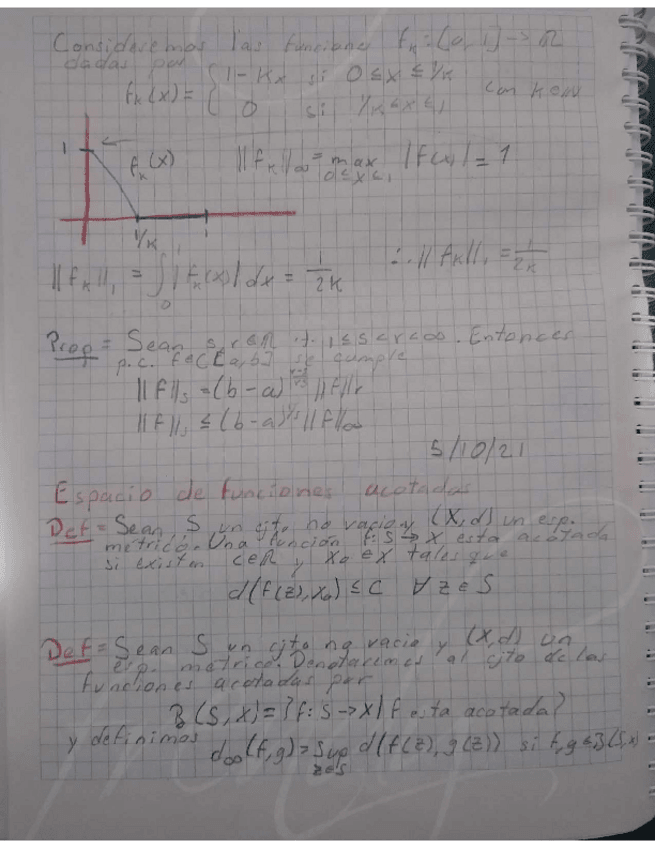 Consideremos las funciones fₖ: [0, 1] → ℝ
dadas por
fₖ(x) = { 1 - kx si 0 ≤ x ≤ 1/k
0 si 1/k ≤ x ≤ 1 con k ∈ ℕ
1
fₖ(x)
||fₖ||∞ = max |f(x)| = 1
0 ≤ x ≤ 1
1/k 1
||fₖ||₁ = ∫₀¹ |fₖ(x)| dx = 1/2k ∴ ||fₖ||₁ = 1/2k
Prop = Sean s, r ∈ ℝ t. 1 ≤ s < r < ∞. Entonces
p.c. f ∈ C[a, b] se cumple
||f||ₛ = (b - a)^((r-s)/rs) ||f||r
||f||ₛ ≤ (b - a)^(1/s) ||f||∞
5/10/21
Espacio de funciones acotadas
Def = Sean S un cjto no vacio y (X, d) un esp.
metrico. Una función f: S → X esta acotada
si existen c ∈ ℝ y x₀ ∈ X tales que
d(f(z), x₀) ≤ C ∀ z ∈ S
Def = Sean S un cjto no vacio y (X, d) un
esp. metrico. Denotaremos al cjto de las
funciones acotadas por
B(S, X) = {f: S → X | f esta acotada}
y definimos
d∞(f, g) = sup d(f(z), g(z)) si f, g ∈ B(S, X)
z∈S